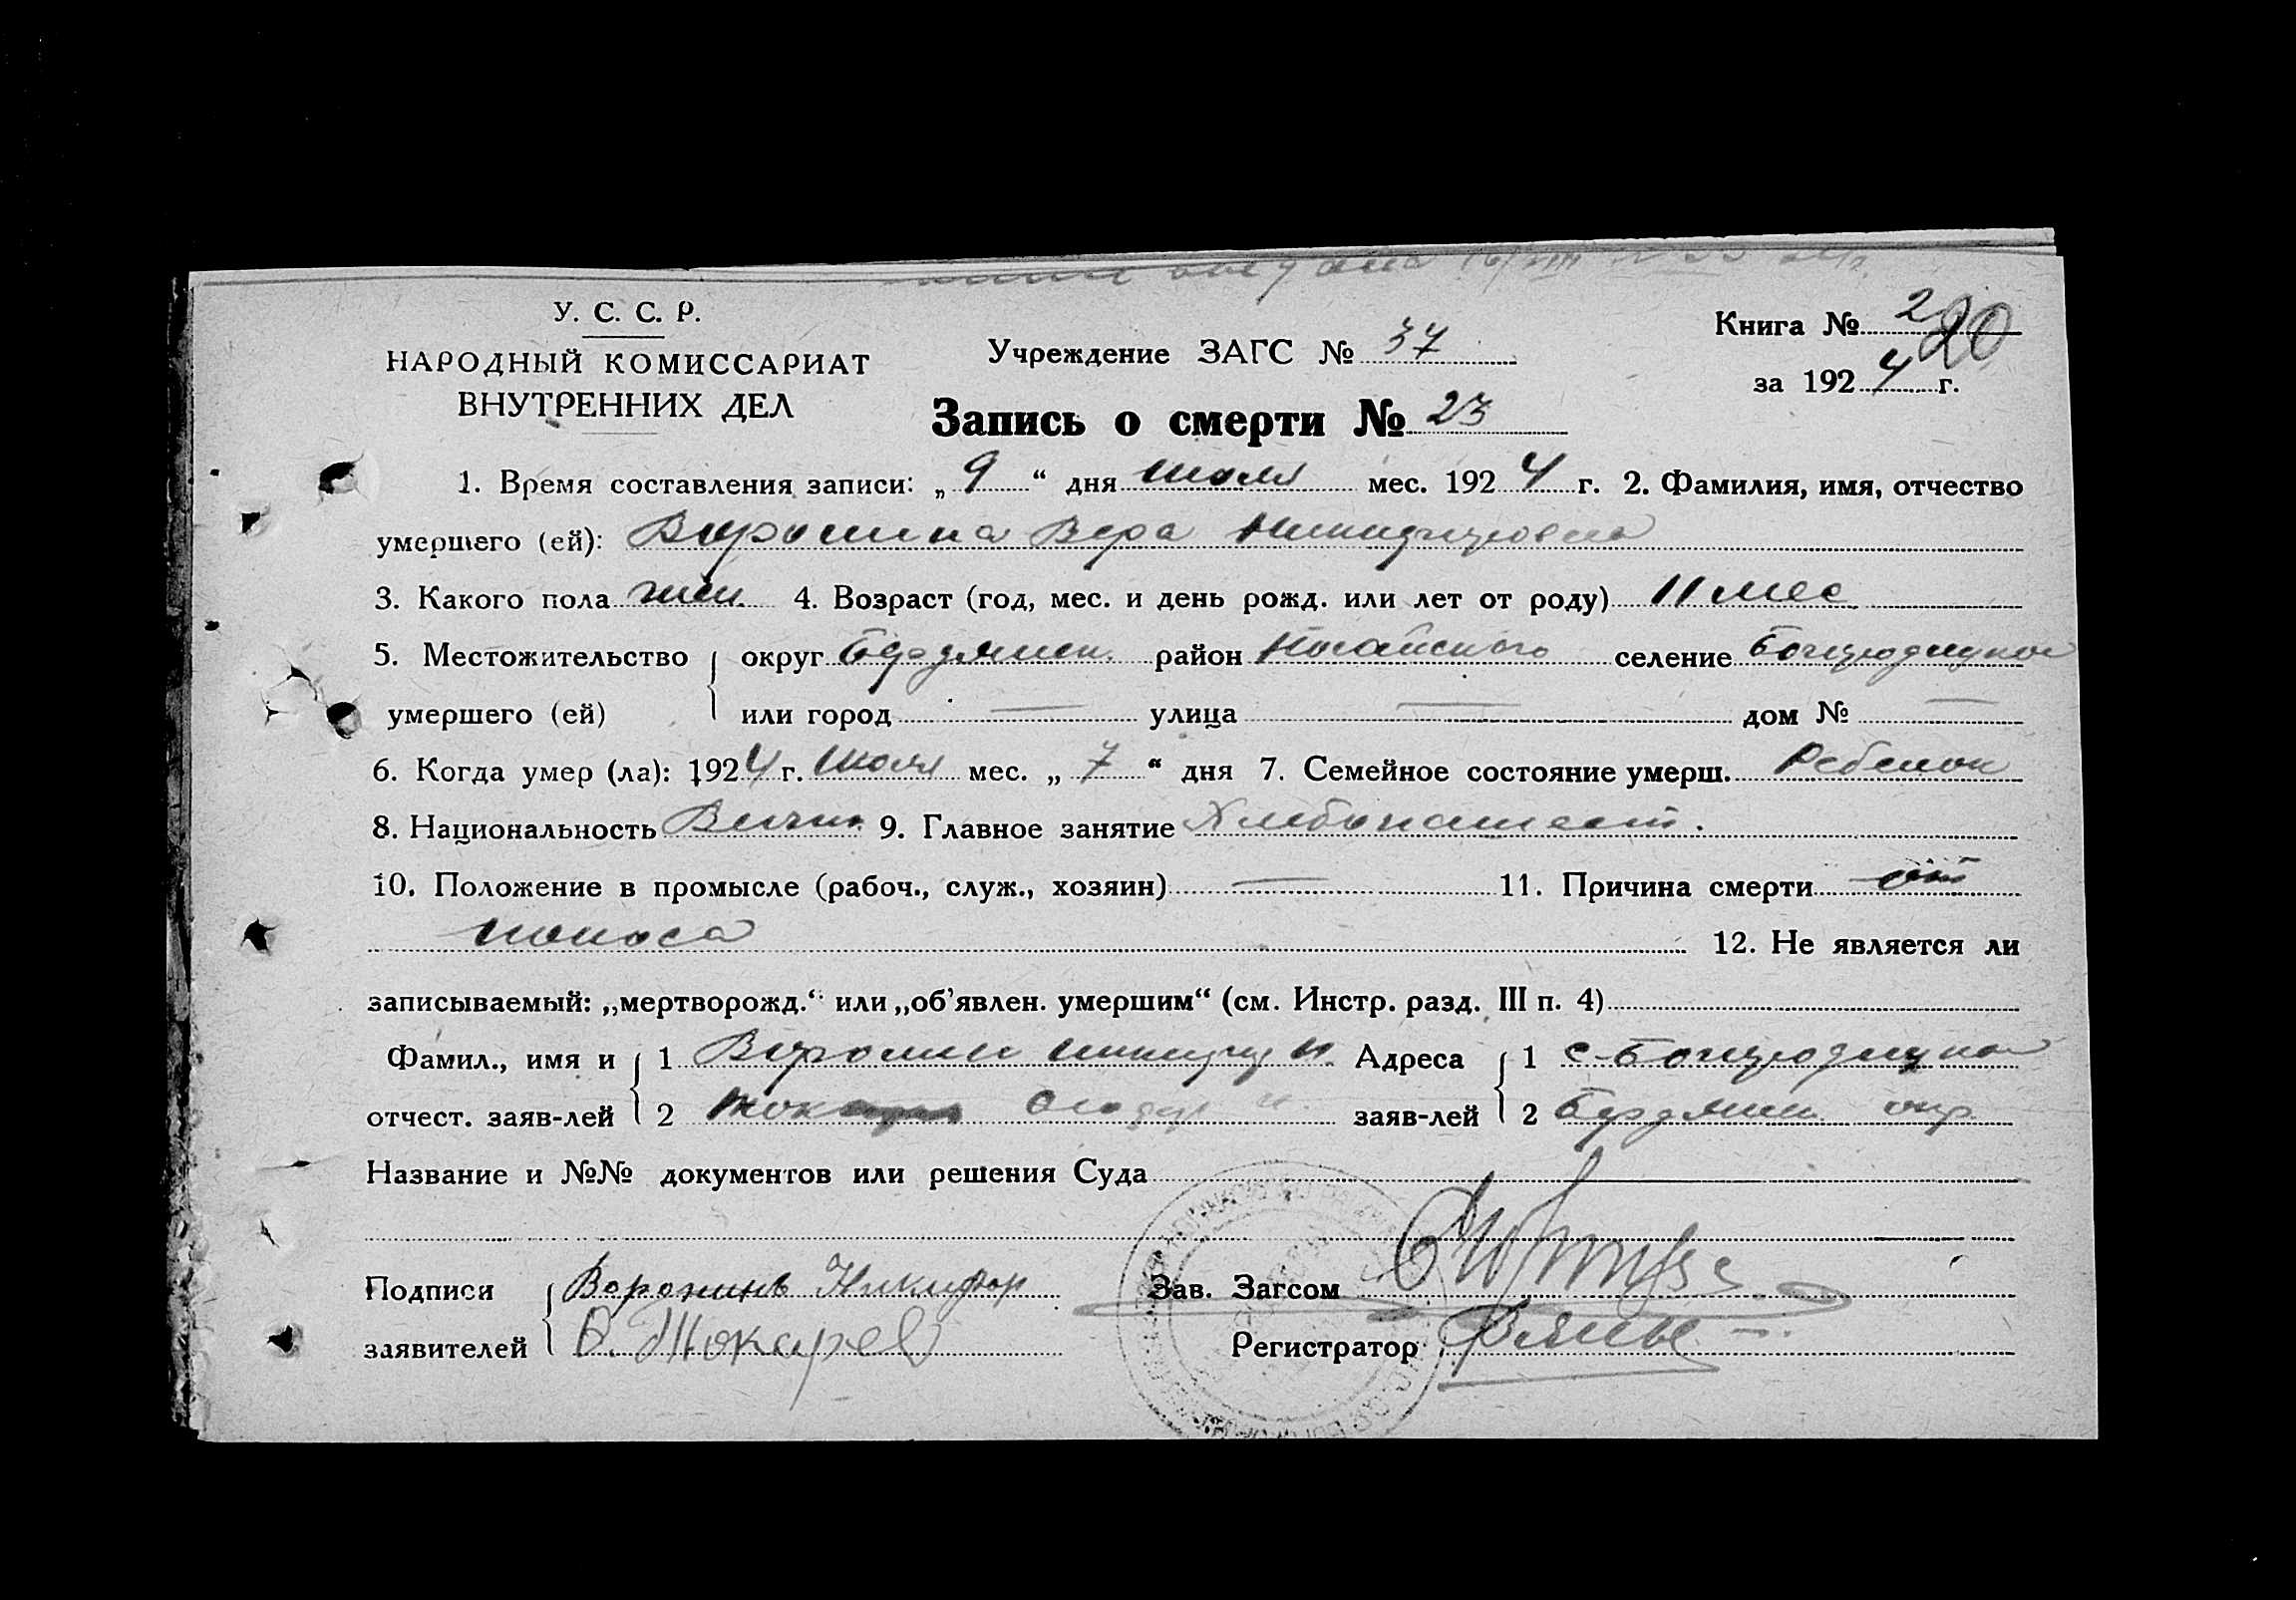 У. С. С. Р.
НАРОДНЫЙ КОМИССАРИАТ
ВНУТРЕННИХ ДЕЛ
Учреждение ЗАГС № 37
Книга № 2 20
за 1924 г.
Запись о смерти № 23
1. Время составления записи: „ 9 “ дня июля мес. 1924 г. 2. Фамилия, имя, отчество
умершего (ей): Воронина Вера Никифоровна
3. Какого пола жен. 4. Возраст (год, мес. и день рожд. или лет от роду) 11 мес
5. Местожительство округ Бердянск. район Ногайского селение
умершего (ей) или город — улица — дом № —
6. Когда умер (ла): 1924 г. июля мес. „ 7 “ дня 7. Семейное состояние умерш. Ребенок
8. Национальность 9. Главное занятие Хлебопашест.
10. Положение в промысле (рабоч., служ., хозяин) — 11. Причина смерти от
поноса 12. Не является ли
записываемый: „мертворожд.“ или „об’явлен. умершим“ (см. Инстр. разд. III п. 4)
Фамил., имя и 1 Воронин Адреса 1 с.
отчест. заяв-лей 2 заяв-лей 2 Бердянск окр
Название и №№ документов или решения Суда
Подписи Воронинъ Никифор Зав. Загсом
заявителей Токарев Регистратор